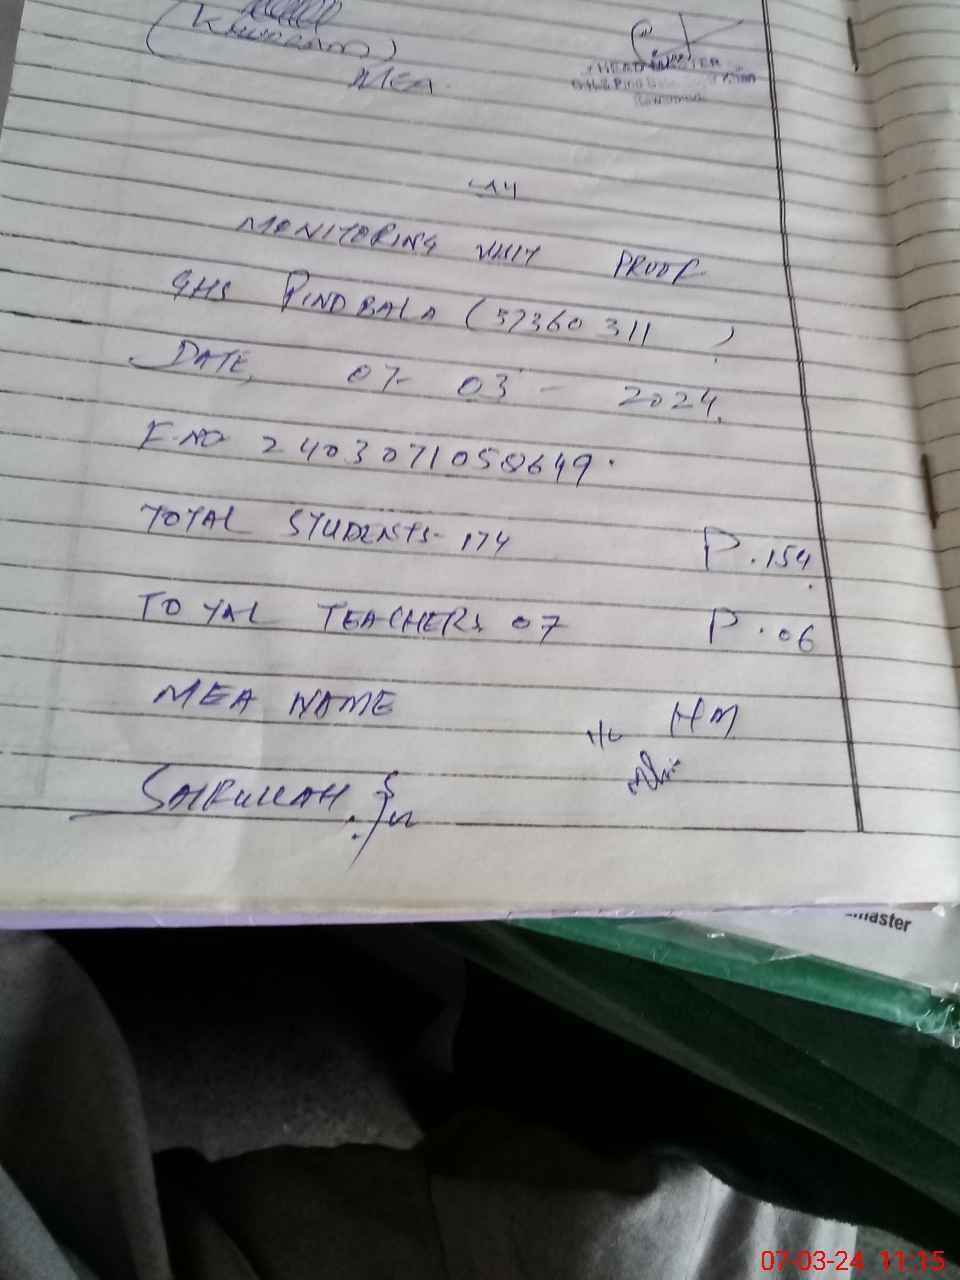 (Khurram)
MEA
HEADMASTER
MONITORING VISIT PROOF
GHS PINDBALA (37360311 )
DATE, 07- 03 - 2024.
F-NO 2403071058649.
TOTAL STUDENTS- 174 P.154
TOTAL TEACHERS 07 P.06
MEA NAME
HM
SAIFULLAH
master
07-03-24 11:15